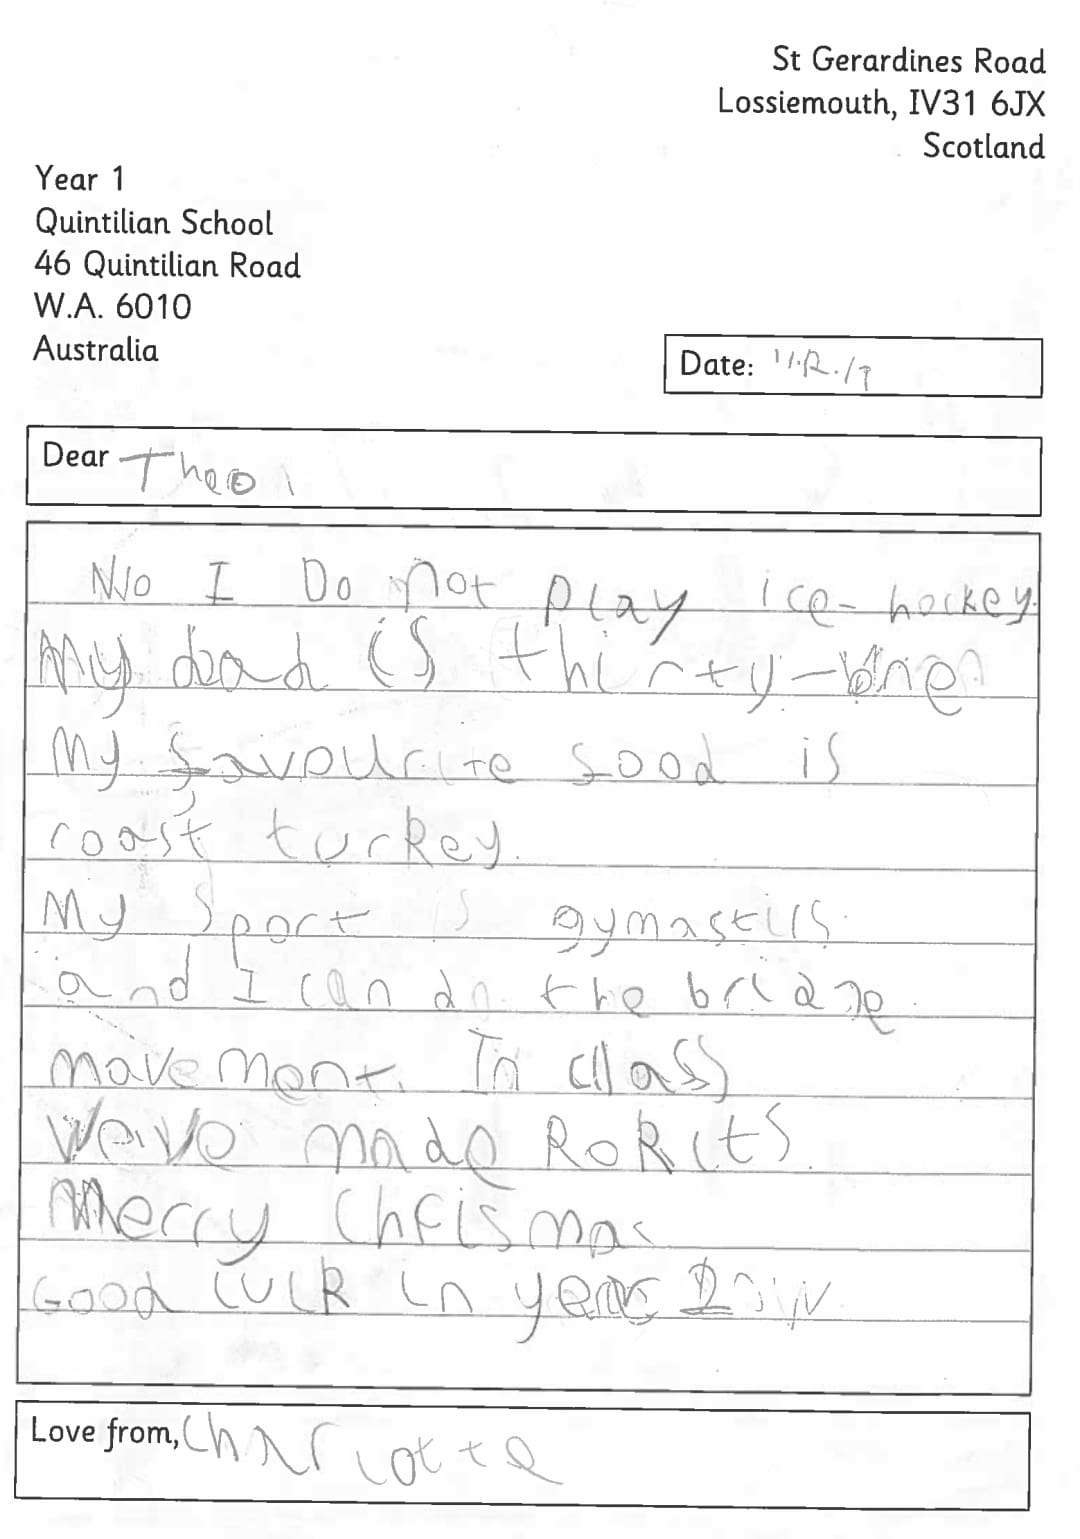 St Gerardines Road
Lossiemouth, IV31 6JX
Scotland
Year 1
Quintilian School
46 Quintilian Road
W.A. 6010
Australia
Date: 11.12.19
Dear Theo
No I Do not play ice-hockey.
My dad is thirty-one
My favourite food is
roast turkey.
My Sport is gymastics
and I can do the bridge
movement. In class
weve made RoKits.
Merry Chrismas
Good luck in year 2
Love from, Charlotte